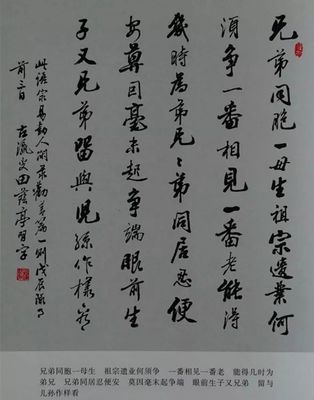 兄弟同胞一母生祖宗遺業何
須争一番相見一番老能得
幾時為弟兄〻弟同居忍便
安莫因毫末起争端眼前生
子又兄弟留與兒孫作樣看
此語動人勸善篇一則戊辰
前三日 古瀛田蔭亭習字
兄弟同胞一母生 祖宗遗业何须争 一番相见一番老 能得几时为
弟兄 兄弟同居忍便安 莫因毫末起争端 眼前生子又兄弟 留与
儿孙作样看